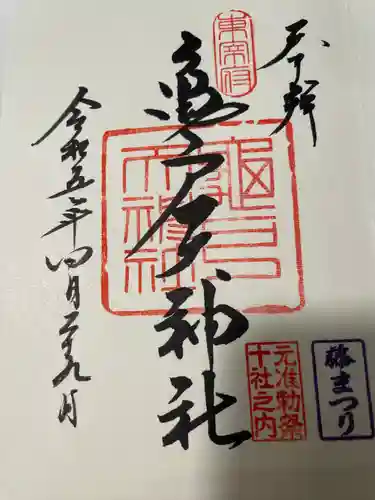 奉拝
東宰府
亀戸天神社
龜戸天神社
令和五年四月二十九日
元准勅祭
十社之内
藤まつり